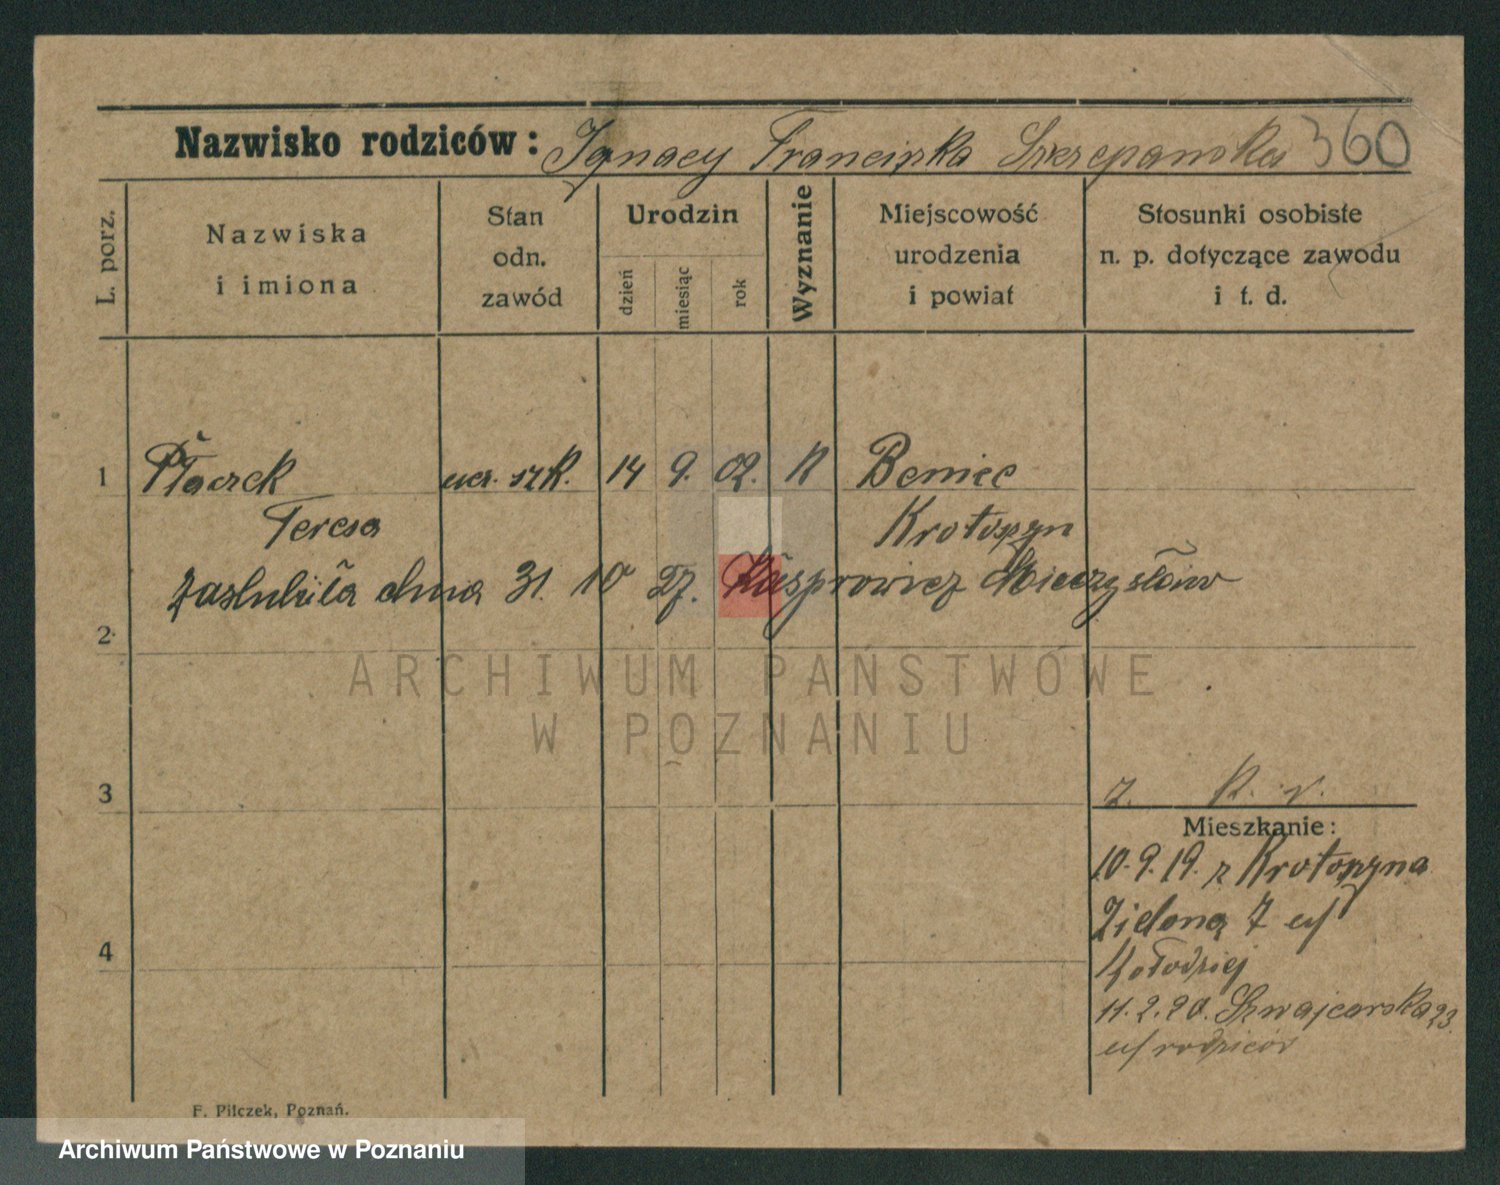 Nazwisko rodziców: Ignacy Franciszka Szczepańska 360
L. porz.
Nazwiska
i imiona
Stan
odn.
zawód
Urodzin
dzień
miesiąc
rok
Wyznanie
Miejscowość
urodzenia
i powiat
Stosunki osobiste
n. p. dotyczące zawodu
i t. d.
1 Ptaczek ucz. szk. 14 9. 02. K Benice
Teresa Krotoszyn
zaslubiła dnia 31. 10 27. Kasprowicz Mieczysław
2
ARCHIWUM PAŃSTWOWE
W POZNANIU
3
z. k. v.
Mieszkanie:
10.9.19. z Krotoszyna
Zielona 7 u/
4
11.2.20. Szwajcarska 23.
u/ rodziców
F. Pilczek, Poznań.
Archiwum Państwowe w Poznaniu